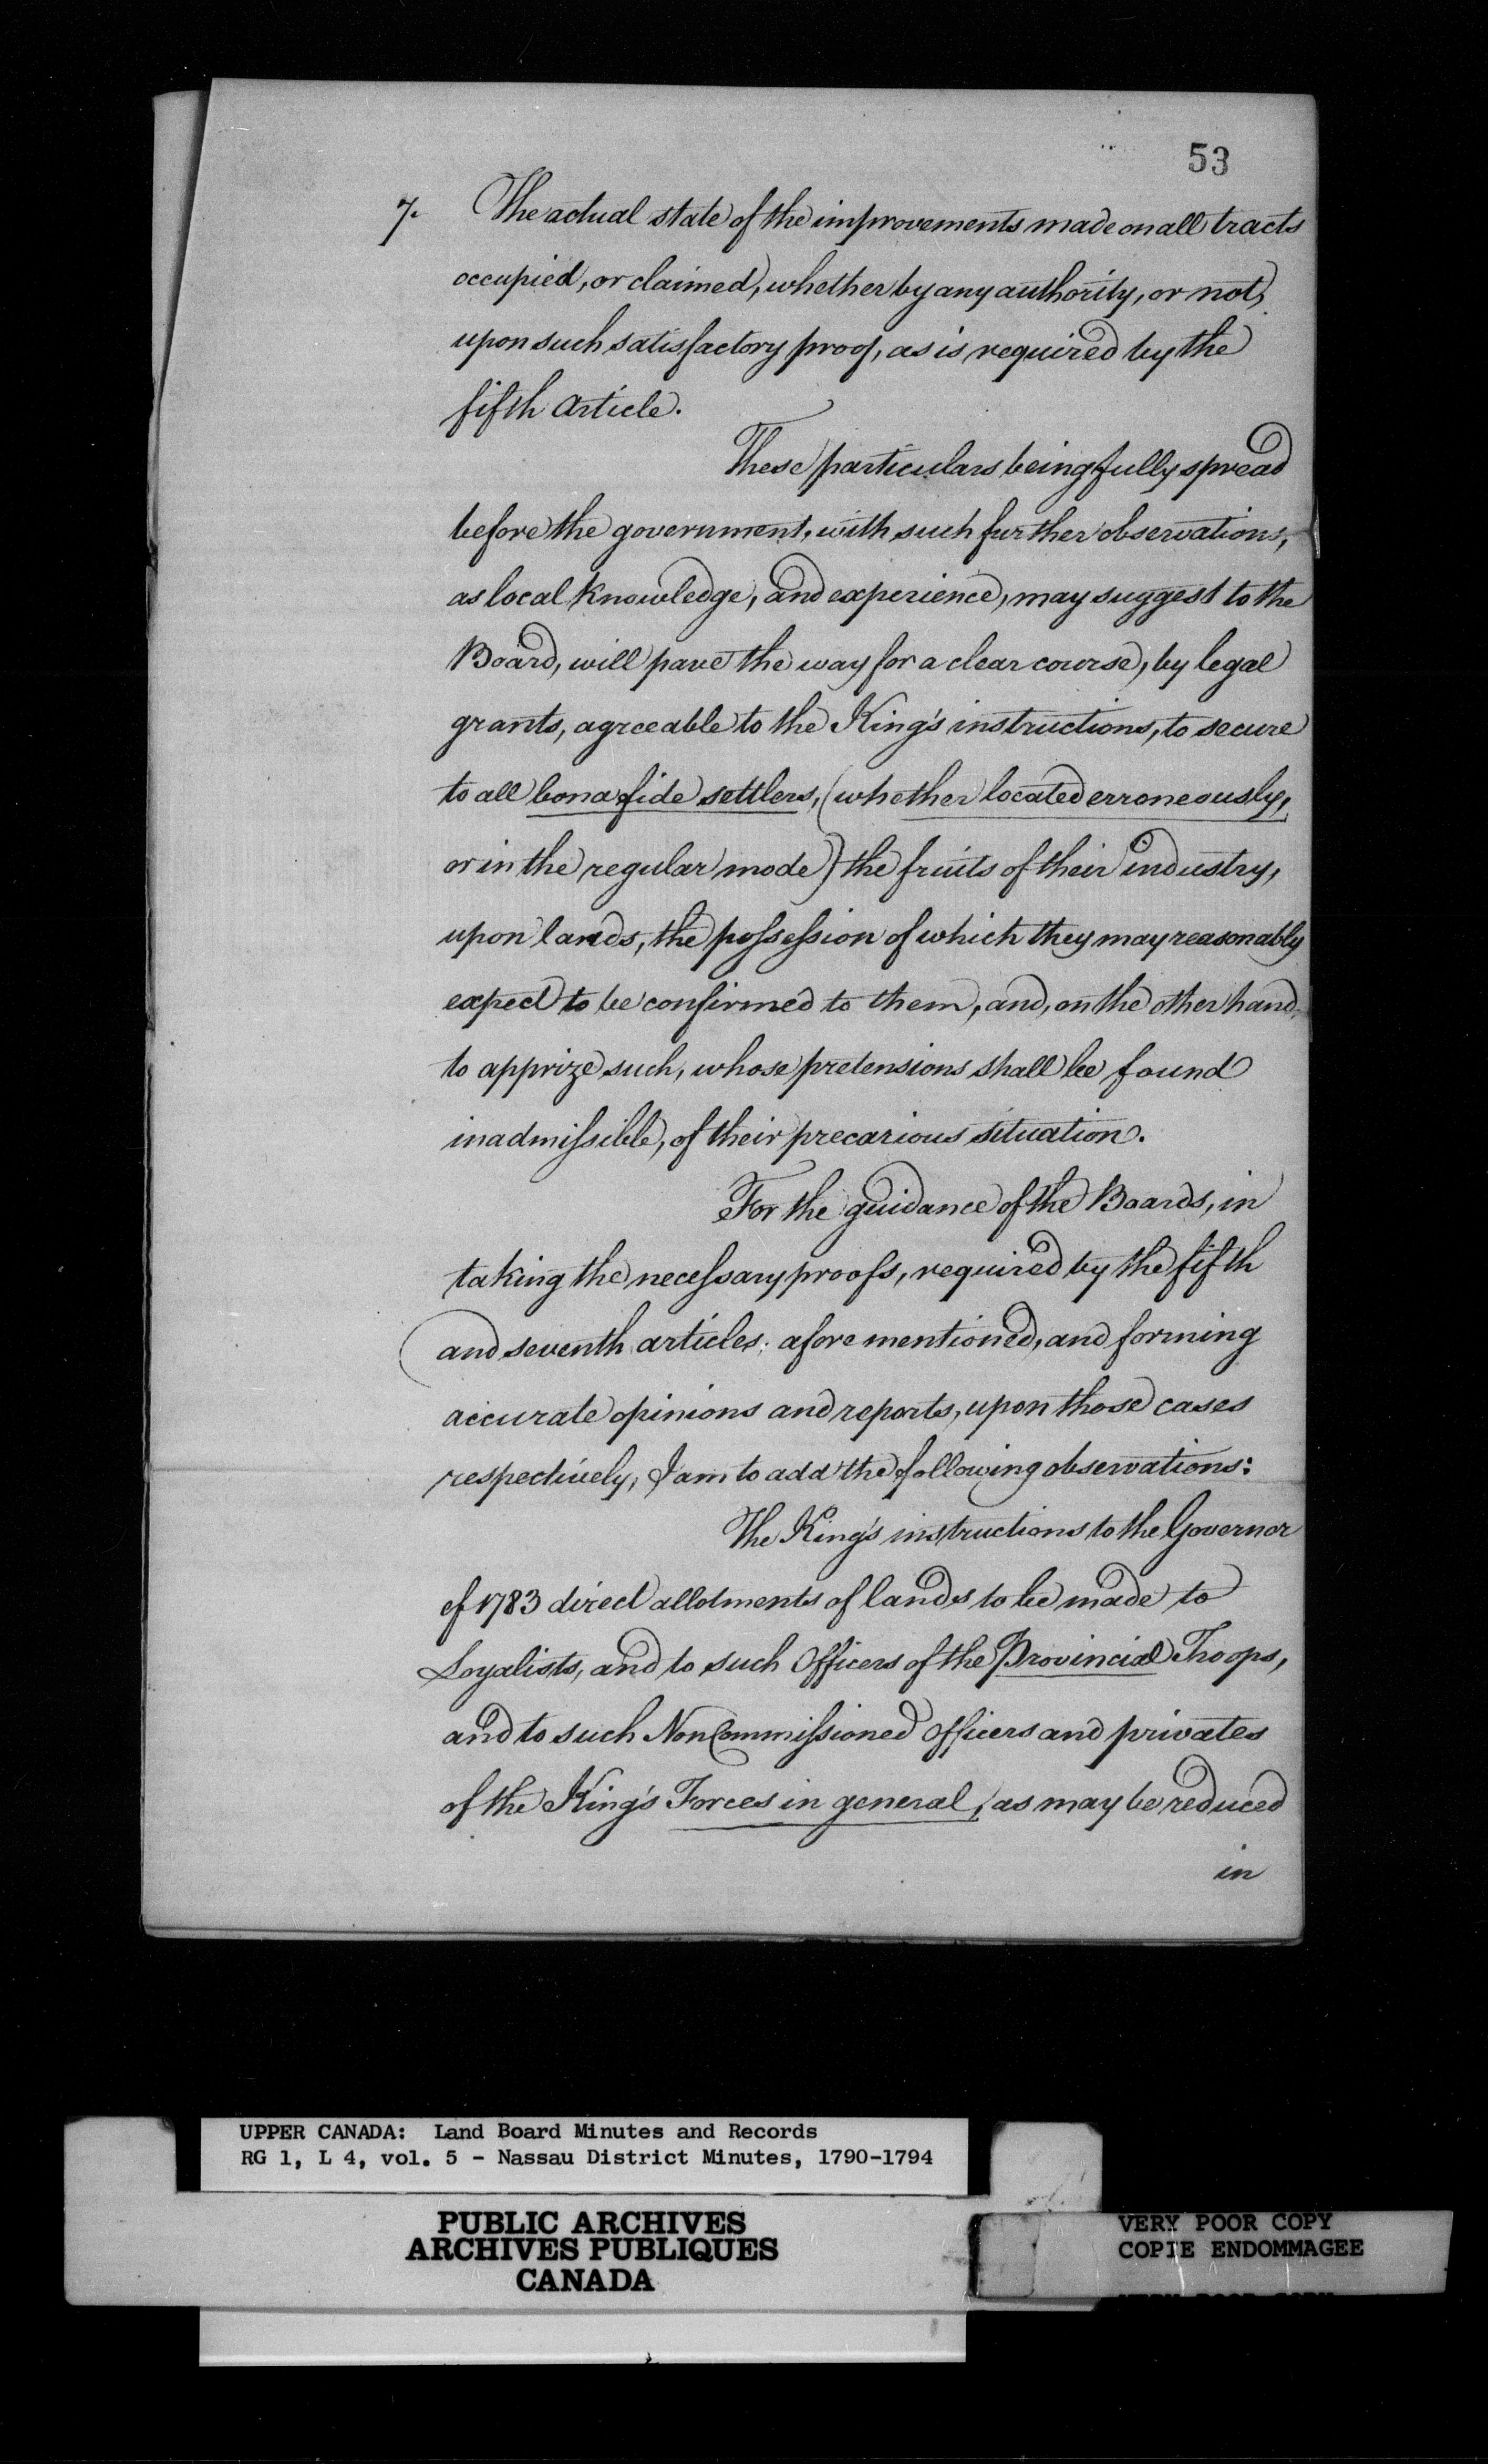 53
7. The actual state of the improvements made on all tracts
occupied, or claimed, whether by any authority, or not,
upon such satisfactory proof, as is required by the
fifth Article.
These particulars being fully spread
before the government, with such further observations,
as local knowledge, and experience, may suggest to the
Board, will pave the way for a clear course, by legal
grants, agreeable to the King's instructions, to secure
to all bona fide settlers, (whether located erroneously,
or in the regular mode) the fruits of their industry,
upon lands, the possession of which they may reasonably
expect to be confirmed to them, and, on the other hand,
to apprize such, whose pretensions shall be found
inadmissible, of their precarious situation.
For the guidance of the Boards, in
taking the necessary proofs, required by the fifth
and seventh articles, afore mentioned, and forming
accurate opinions and reports, upon those cases
respectively, I am to add the following observations:
The King's instructions to the Governor
of 1783 direct allotments of lands to be made to
Loyalists, and to such Officers of the Provincial Troops,
and to such Non Commissioned Officers and privates
of the King's Forces in general, as may be reduced
in
UPPER CANADA: Land Board Minutes and Records
RG 1, L 4, vol. 5 - Nassau District Minutes, 1790-1794
PUBLIC ARCHIVES
ARCHIVES PUBLIQUES
CANADA
VERY POOR COPY
COPIE ENDOMMAGEE